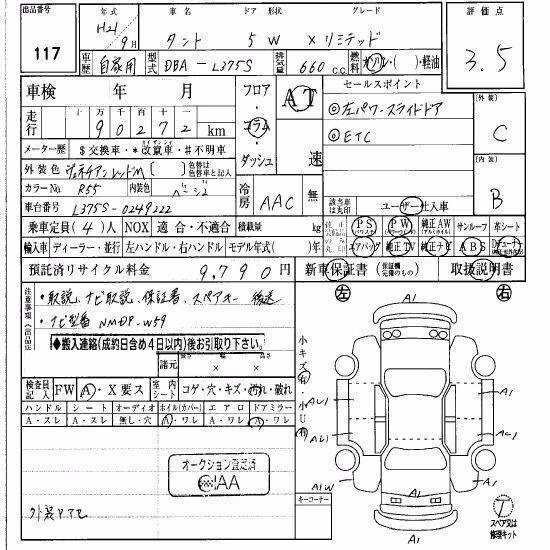 出品番号 年式 車名 ドア 形状 グレード 評価点
117 H21年9月 タント 5 W Xリミテッド 3.5
車歴 自家用 型式 DBA-L375S 排気量 660 c.c. 燃料 ガソリン・( )・軽油
車検 年 月 フロア・コラム・ダッシュ AT 速 セールスポイント
走行 十万千百十一
90272 km
◎左パワースライドドア
◎ETC
外装 C
内装 B
メーター歴 $交換車・*改竄車・#不明車
外装色 ( ) 色替は色替車と記入
カラーNo R55 内装色 ベージュ
車台番号 L375S-0249222
冷房 AAC 無 該当車は丸印 ユーザー仕入車
乗車定員(4)人 NOX 適合・不適合 積載量 kg PS PW 純正AW サンルーフ 革シート
輸入車 ディーラー・並行 左ハンドル・右ハンドル モデル年式( )年 エアバッグ 純正TV 純正ナビ ABS
預託済リサイクル料金 9,790円 新車保証書 取扱説明書
注意事項(出品店申告)
・取説、ナビ取説、保証書、スペアキー 後送
・ナビ型番 NMDP-W59
◆搬入連絡(成約日含め4日以内)後お引取り下さい。
諸元 長さ 幅 高さ
× ×
検査員記入 FW A・X要ス 室内シート コゲ・穴・キズ・汚れ・破れ
ハンドル シート オーディオ ホイル(カバー) エアロ ドアミラー
A・スレ A・スレ 無し・穴 A・ワレ A・ワレ A・ワレ
オークション査定済
CIAA
外装
小キズ有・小U有
コーナー
左 右
A1
A1
AU1
AU1
A1
A1
A1W
A1
T
スペア又は修理キット